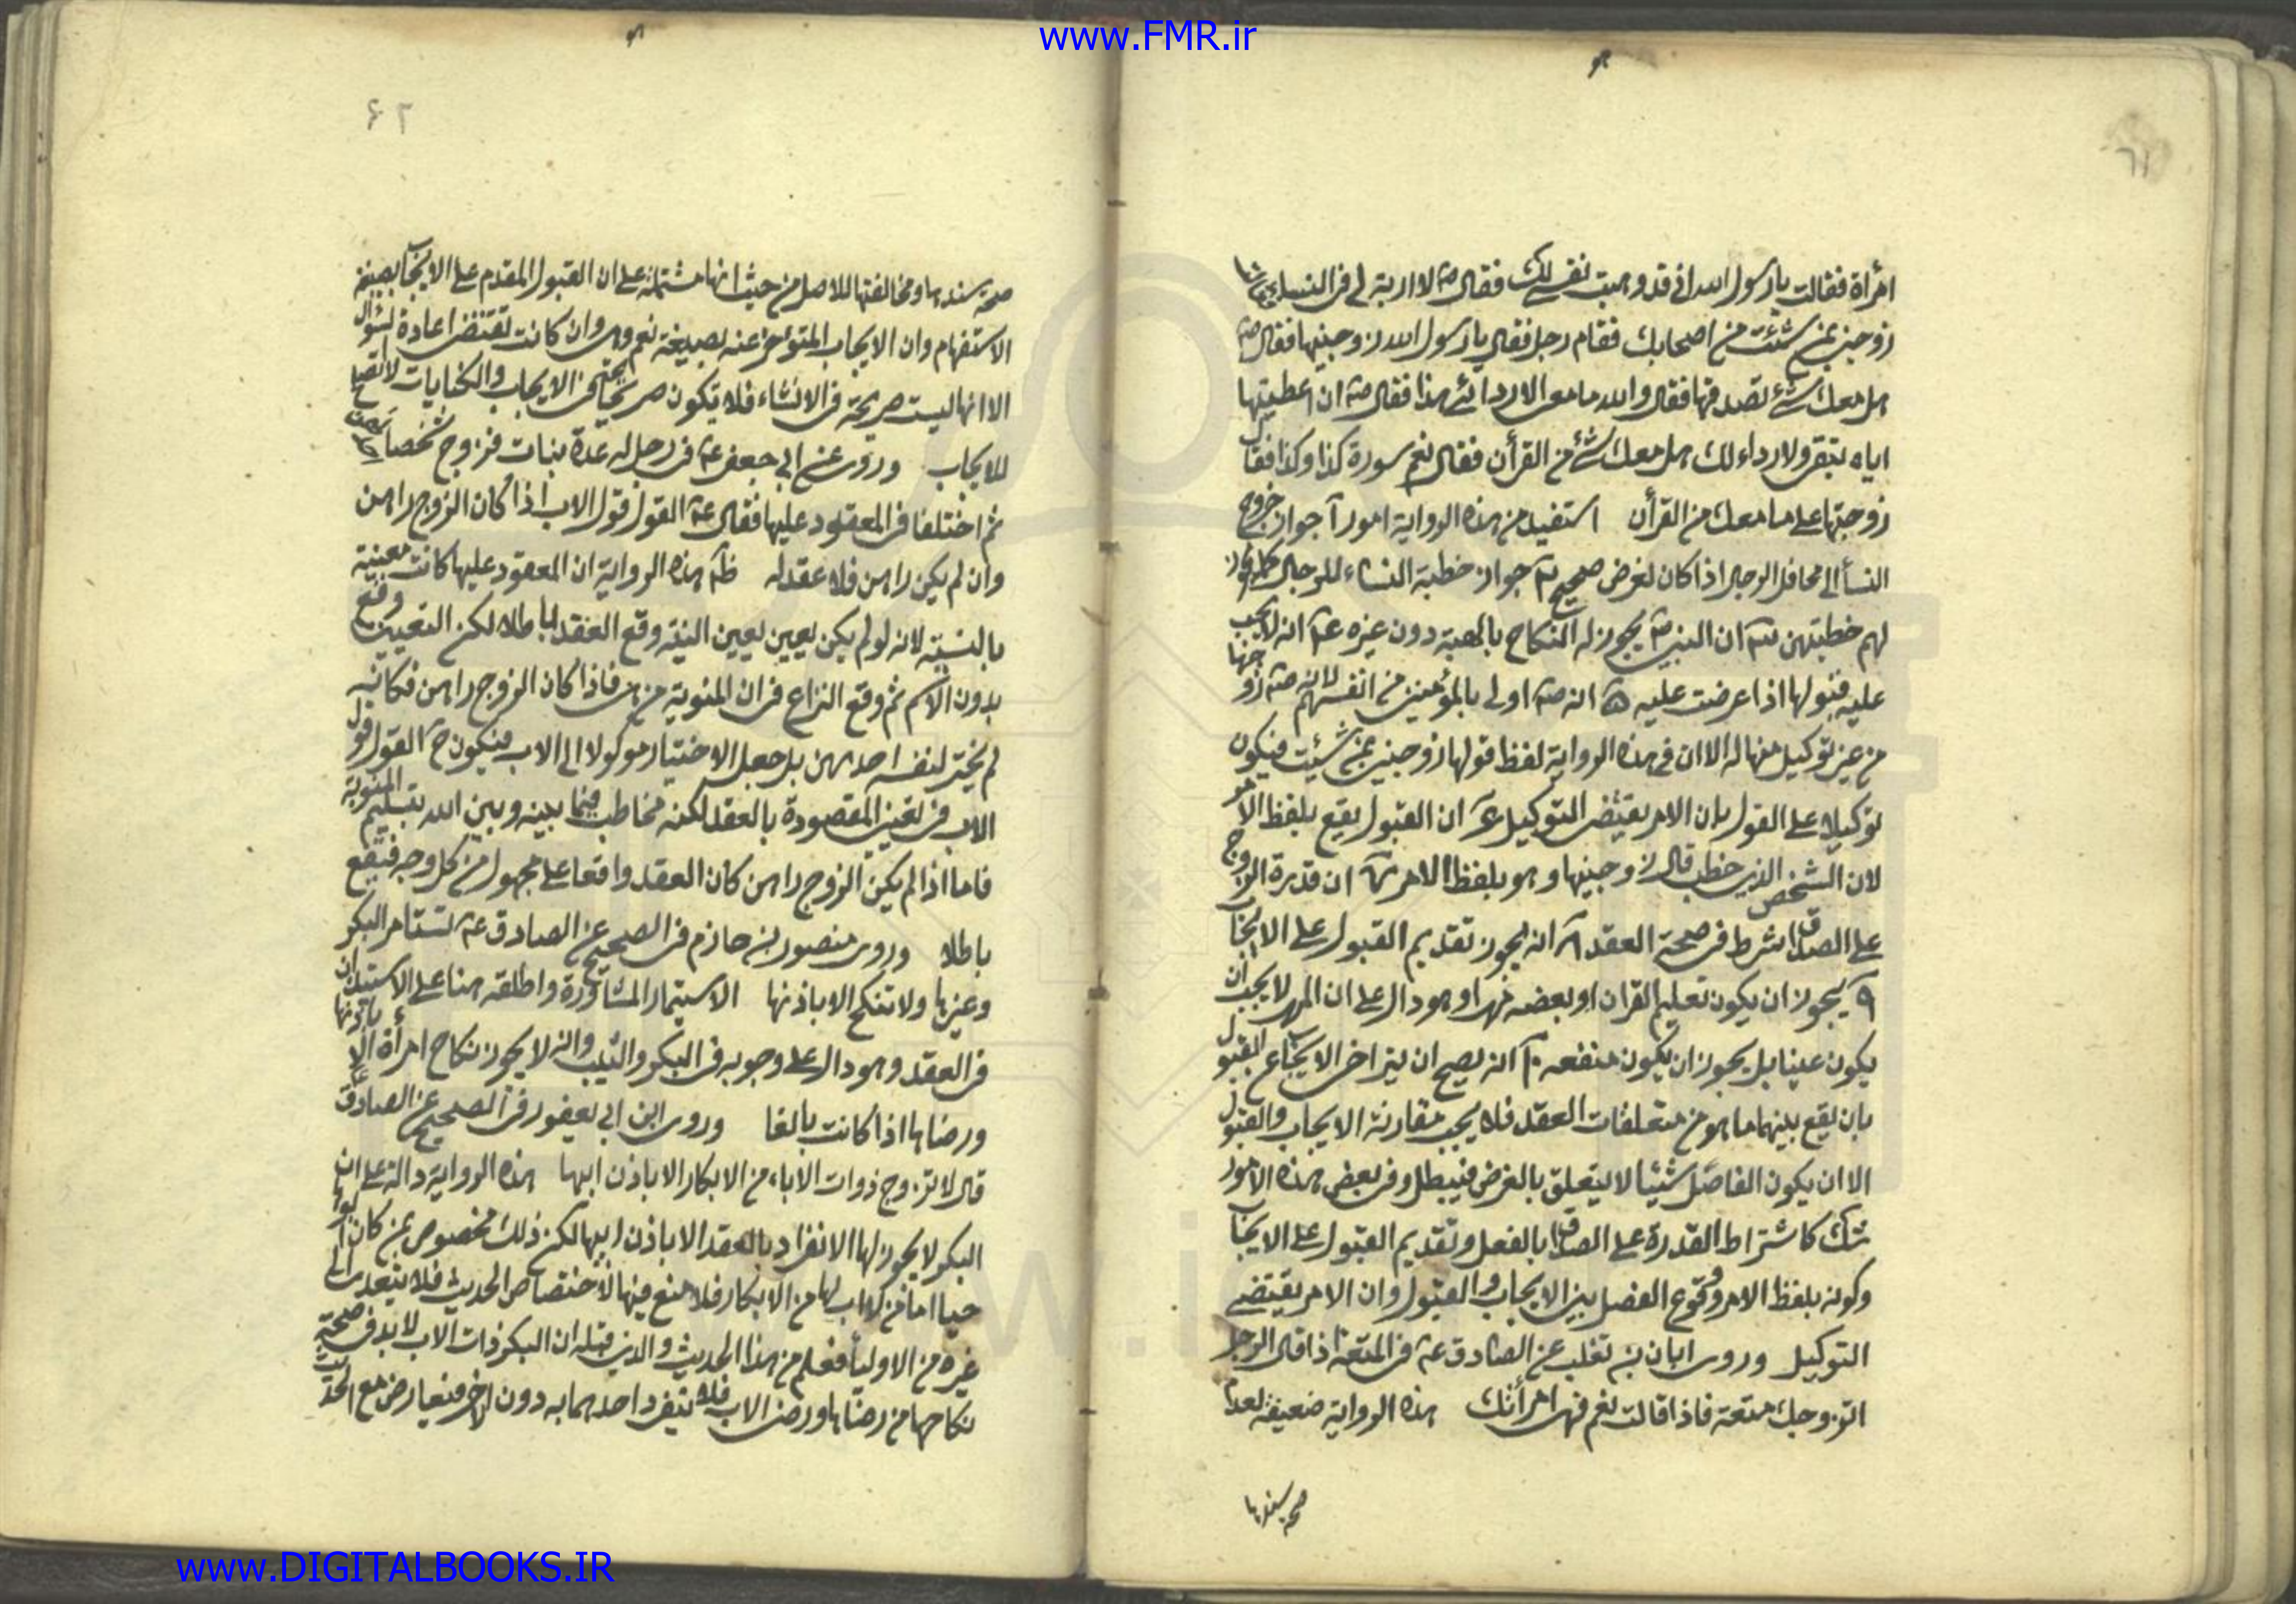 www.FMR.ir
٦١
امرأة فقالت يا رسول الله اني قد وهبت نفسي لك فقال ص لا اربة لي في النساء فقالت
زوجني بمن شئت من اصحابك فقام رجل فقال يا رسول الله زوجنيها فقال ص
هل معك شئ تصدقها فقال والله ما معي الا ردائي هذا فقال ص ان اعطيتها
اياه تبقى ولا رداء لك هل معك شئ من القرأن فقال نعم سورة كذا وكذا فقال
زوجتها على ما معك من القرأن استفيد من هذه الرواية امور آ جواز خروج
النسأ الى محافل الرجال اذا كان لغرض صحيح جواز خطبة النساء للرجال كما يجوز
لهم خطبتهن ان النبي ص يجوز له النكاح بالهبة دون غيره انه لا يجب
عليه قبولها اذا عرضت عليه انه ص اولى بالمؤمنين من انفسهم لانه ص زوجها
من غير توكيل منها له الا ان في هذه الرواية لفظ قولها زوجني بمن شئت فيكون
توكيلا على القول بان الامر يقتضي التوكيل ان القبول يقع بلفظ الامر
لان الشخص الذي خطب قال زوجنيها وهو بلفظ الامر ان قدرة الزوج
على الصداق شرط في صحة العقد انه يجوز تقديم القبول على الايجاب
يجوز ان يكون تعليم القران او بعضه مهرا وهو دال على ان المهر لا يجب ان
يكون عينا بل يجوز ان يكون منفعه انه يصح ان يتراخى الايجاب عن القبول
بان يقع بينهما ما هو من متعلقات العقد فلا يجب مقارنة الايجاب والقبول
الا ان يكون الفاصل شيئا لا يتعلق بالغرض فيبطل وفي بعض هذه الامور
شك كاشتراط القدرة على الصداق بالفعل وتقديم القبول على الايجاب
وكونه بلفظ الامر ووقوع الفصل بين الايجاب والقبول وان الامر يقتضي
التوكيل وروى ابان بن تغلب عن الصادق ع في المتعة اذا قال الرجل
اتزوجك متعة فاذا قالت نعم فهي امرأتك هذه الرواية ضعيفة لعدم
صحة سندها
٦٢
صحة سندها ومخالفتها للاصل من حيث انها مشتملة على ان القبول المقدم على الايجاب بصيغة
الاستفهام وان الايجاب المتوخر عنه بصيغة نعم وهي وان كانت تقتضي اعادة السؤال
الا انها ليست صريحة في الانشاء فلا تكون صريحا في الايجاب والكنايات لا تصلح
للايجاب وروى عن ابي جعفر ع في رجل له عدة بنات فزوج شخصا
ثم اختلفا في المعقود عليها فقال ع القول قول الاب اذا كان الزوج راهن
وان لم يكن راهن فلا عقد له هذه الرواية ان المعقود عليها كانت معينة
بالنسبة لانه لو لم يكن يعيين يعيين النية وقع العقد باطلا لكن التعيين وقع
بدون الاسم ثم وقع النزاع في ان المنوية من هي فاذا كان الزوج راهن فكانه
لم يختر لنفسه احدهن بل جعل الاختيار موكولا الى الاب فيكون ح القول قول
الاب في تعيين المقصودة بالعقد لكنه مخاطب فيما بينه وبين الله بتسليم المنوية
فاما اذا لم يكن الزوج راهن كان العقد واقعا على مجهول من كل وجه فيقع
باطلا وروى منصور بن حازم في الصحيح عن الصادق ع تستامر البكر
وغيرها ولا تنكح الا باذنها الاستيمار المشاورة واطلقه هنا على الاستيذان
في العقد وهو دال على وجوبه في البكر والثيب وانه لا يجوز نكاح امرأة الا باذنها
ورضاها اذا كانت بالغا وروى ابن ابي يعفور في الصحيح عن الصادق ع
قال لا تزوج ذوات الاباء من الابكار الا باذن ابيها هذه الرواية دالة على ان
البكر لا يجوز لها الانفراد بالعقد الا باذن ابيها لكن ذلك مخصوص بمن كان ابوها
حيا اما من لا اب لها من الابكار فلا منع فيها لاختصاص الحديث فلا يتعدى الى
غيره من الاوليأ فعلم من هذا الحديث والذي قبله ان البكر ذات الاب لا بد في صحة
نكاحها من رضاها ورضى الاب فلا ينفرد احدهما به دون الاخر فيعارض مع الحديث
www.DIGITALBOOKS.IR